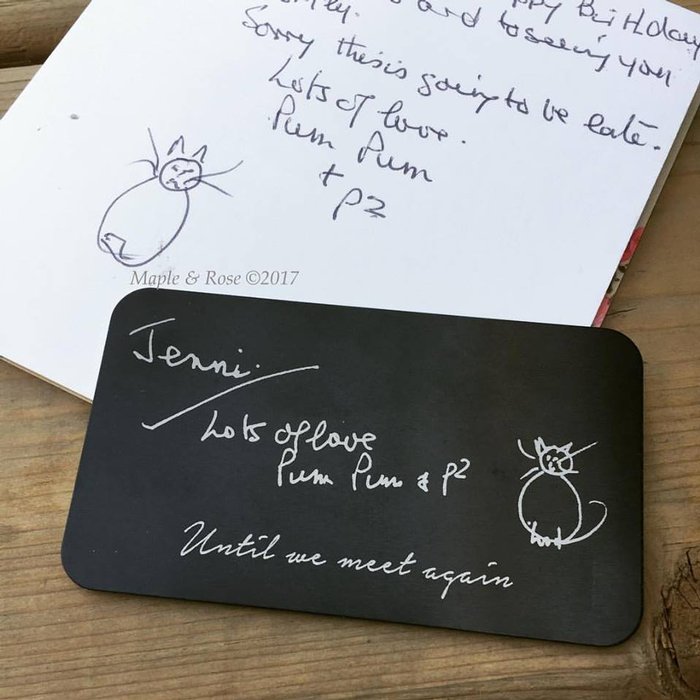 Happy Birthday
and to seeing you
Sorry this is going to be late.
Lots of love.
Pum Pum
+ P2
Maple & Rose ©2017
Jenni.
Lots of love
Pum Pum & P2
Until we meet again